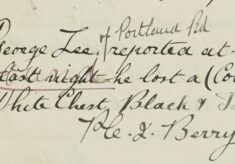 of Portland Rd
George Lee, reported at
last night he lost a (Co
White Chest Black & T
P.C. 2. Berry